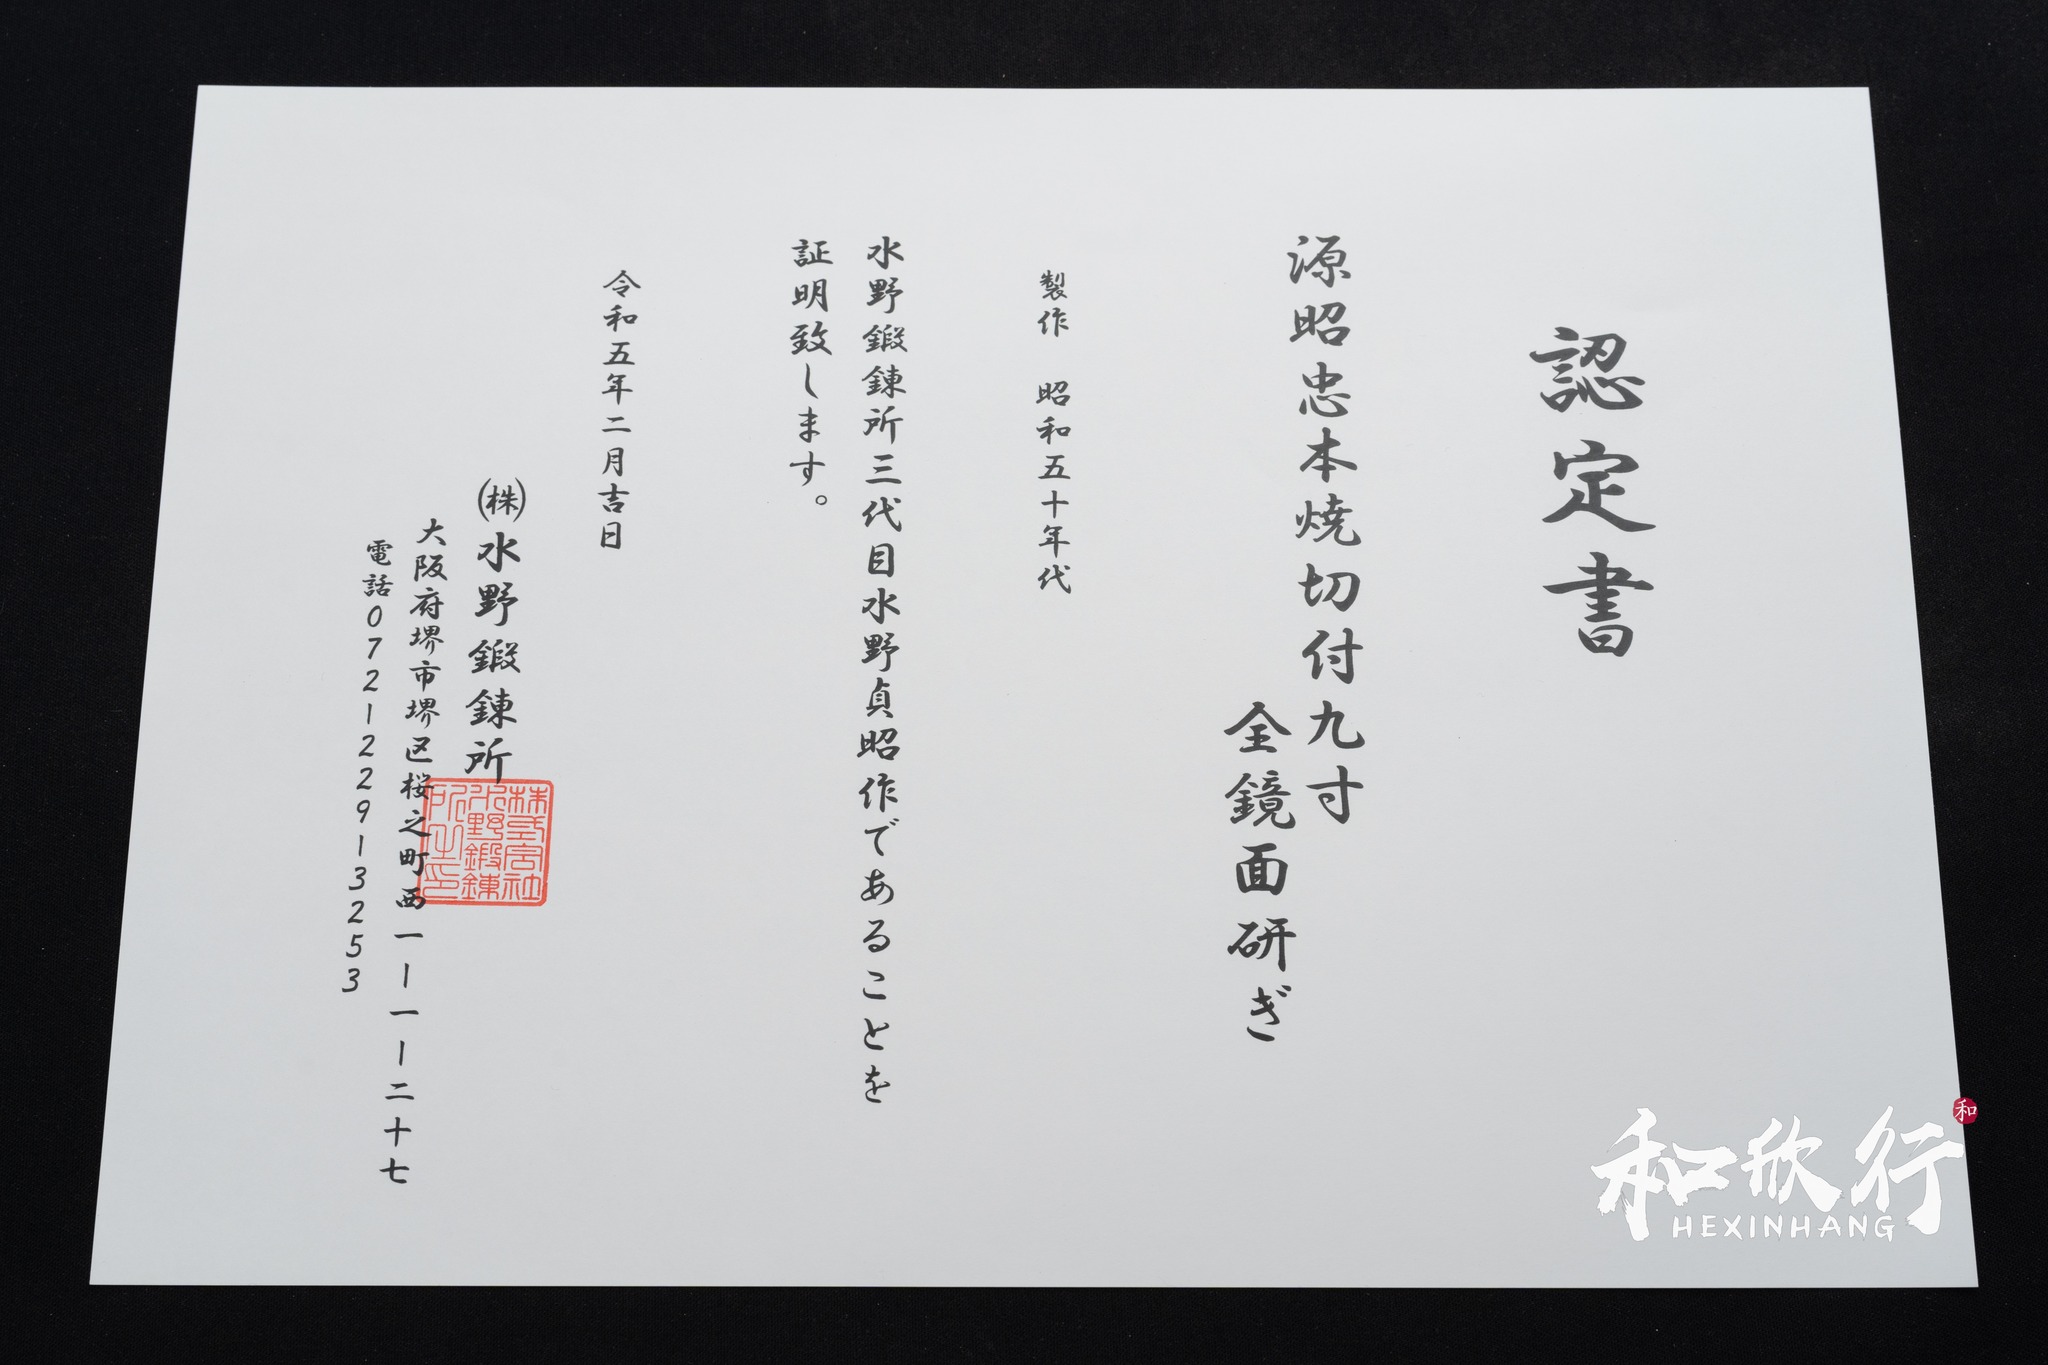 認定書
源昭忠本焼切付九寸
全鏡面研ぎ
製作 昭和五十年代
水野鍛錬所三代目水野貞昭作であることを
証明致します。
令和五年二月吉日
㈱水野鍛錬所
大阪府堺市堺区桜之町西一ー一ー二十七
電話072ー229ー3253
株式会社
水野鍛錬
所之印
和欣行
和
HEXINHANG